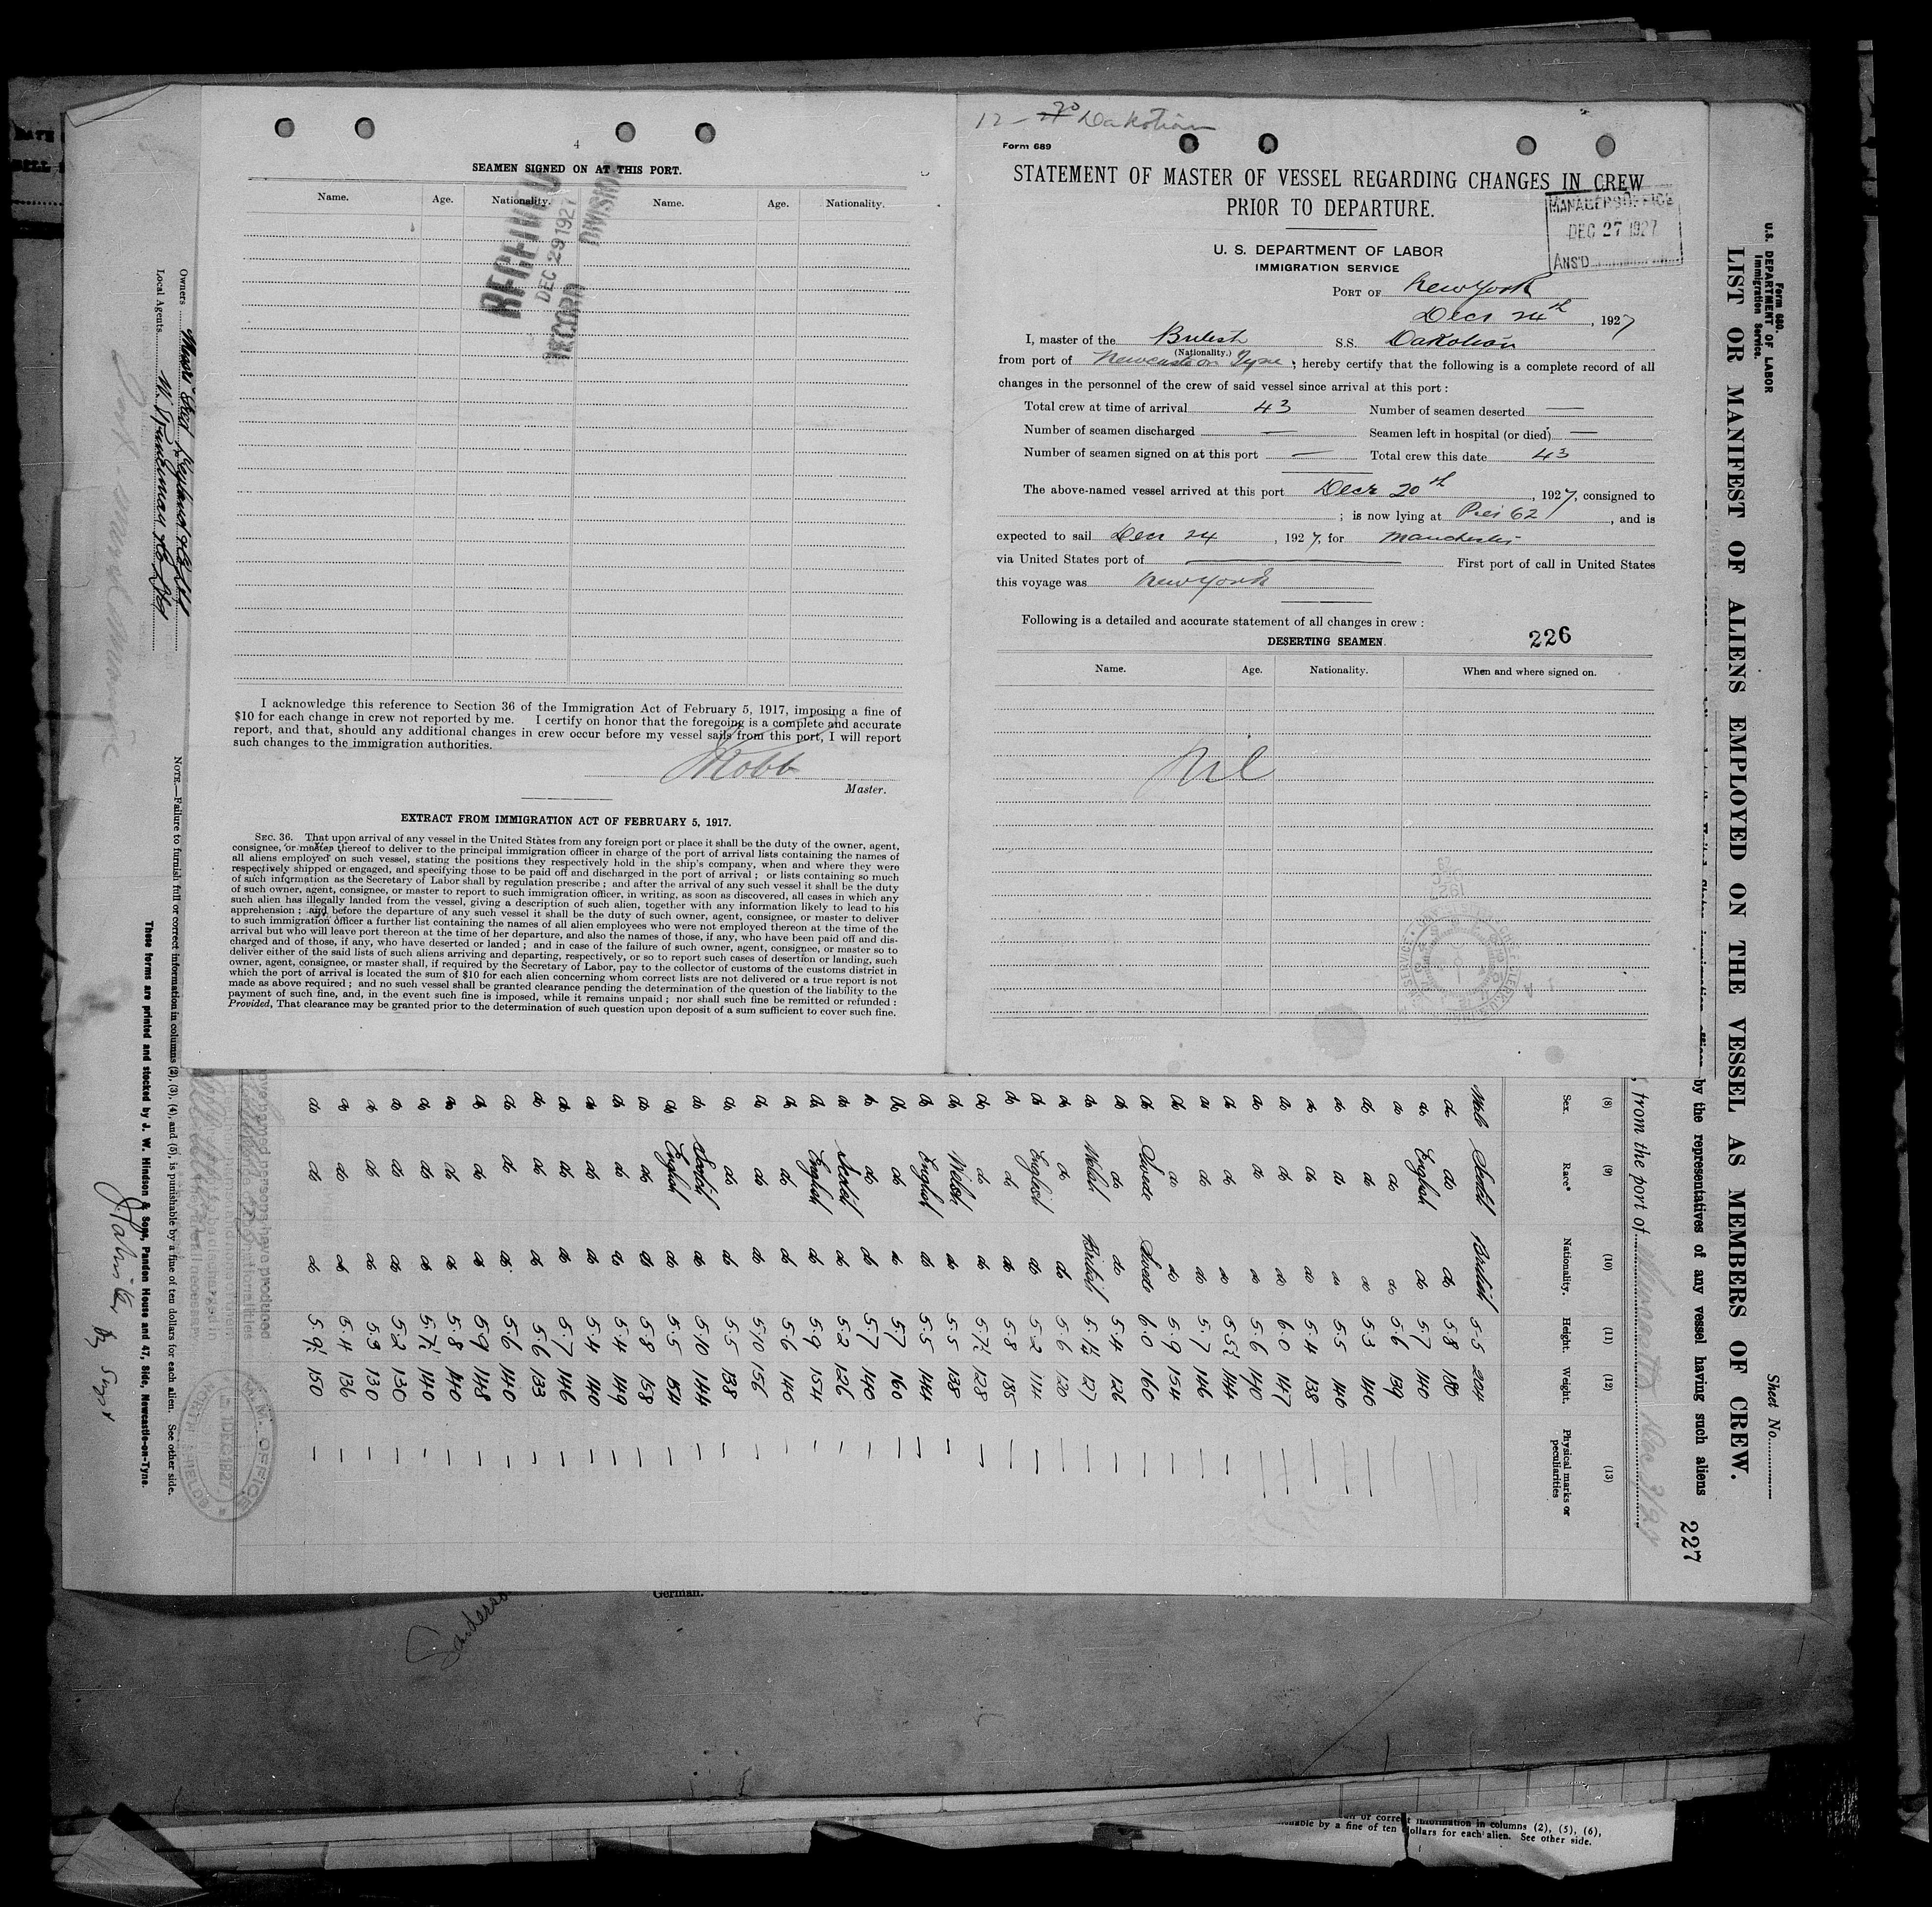 4
SEAMEN SIGNED ON AT THIS PORT.
Name. Age. Nationality. Name. Age. Nationality.
RECEIVED
DEC 29 1927
RECORD DIVISION
I acknowledge this reference to Section 36 of the Immigration Act of February 5, 1917, imposing a fine of
$10 for each change in crew not reported by me. I certify on honor that the foregoing is a complete and accurate
report, and that, should any additional changes in crew occur before my vessel sails from this port, I will report
such changes to the immigration authorities.
Master.
EXTRACT FROM IMMIGRATION ACT OF FEBRUARY 5, 1917.
SEC. 36. That upon arrival of any vessel in the United States from any foreign port or place it shall be the duty of the owner, agent,
consignee, or master thereof to deliver to the principal immigration officer in charge of the port of arrival lists containing the names of
all aliens employed on such vessel, stating the positions they respectively hold in the ship's company, when and where they were
respectively shipped or engaged, and specifying those to be paid off and discharged in the port of arrival; or lists containing so much
of such information as the Secretary of Labor shall by regulation prescribe; and after the arrival of any such vessel it shall be the duty
of such owner, agent, consignee, or master to report to such immigration officer, in writing, as soon as discovered, all cases in which any
such alien has illegally landed from the vessel, giving a description of such alien, together with any information likely to lead to his
apprehension; and before the departure of any such vessel it shall be the duty of such owner, agent, consignee, or master to deliver
to such immigration officer a further list containing the names of all alien employees who were not employed thereon at the time of the
arrival but who will leave port thereon at the time of her departure, and also the names of those, if any, who have been paid off and dis-
charged and of those, if any, who have deserted or landed; and in case of the failure of such owner, agent, consignee, or master so to
deliver either of the said lists of such aliens arriving and departing, respectively, or so to report such cases of desertion or landing, such
owner, agent, consignee, or master shall, if required by the Secretary of Labor, pay to the collector of customs of the customs district in
which the port of arrival is located the sum of $10 for each alien concerning whom correct lists are not delivered or a true report is not
made as above required; and no such vessel shall be granted clearance pending the determination of the question of the liability to the
payment of such fine, and, in the event such fine is imposed, while it remains unpaid; nor shall such fine be remitted or refunded:
Provided, That clearance may be granted prior to the determination of such question upon deposit of a sum sufficient to cover such fine.
12 - 20 Dakotian
Form 689
STATEMENT OF MASTER OF VESSEL REGARDING CHANGES IN CREW
PRIOR TO DEPARTURE.
MANAGERS OFFICE
DEC 27 1927
ANS'D
U. S. DEPARTMENT OF LABOR
IMMIGRATION SERVICE
PORT OF New York
Decr 24th, 1927
I, master of the British S.S. Dakotian
(Nationality.)
from port of Newcastle on Tyne; hereby certify that the following is a complete record of all
changes in the personnel of the crew of said vessel since arrival at this port:
Total crew at time of arrival 43 Number of seamen deserted —
Number of seamen discharged — Seamen left in hospital (or died) —
Number of seamen signed on at this port — Total crew this date 43
The above-named vessel arrived at this port Decr 20th, 1927, consigned to
; is now lying at Pier 62, and is
expected to sail Decr 24, 1927, for Manchester
via United States port of — First port of call in United States
this voyage was New York
Following is a detailed and accurate statement of all changes in crew:
DESERTING SEAMEN. 226
Name. Age. Nationality. When and where signed on.
Nil
Form 680.
U.S. DEPARTMENT OF LABOR
Immigration Service.
Sheet No.
LIST OR MANIFEST OF ALIENS EMPLOYED ON THE VESSEL AS MEMBERS OF CREW.
by the representatives of any vessel having such aliens
227
, from the port of
(8) (9) (10) (11) (12) (13)
Sex. Race* Nationality. Height. Weight. Physical marks or peculiarities
Male Scotch British 5-5 204
do do do 5.8 180
do English do 5.7 140
do do do 5.6 139
do do do 5.3 146
do do do 5.5 140
do do do 5.4 138
do do do 6.0 147
do do do 5.6 140
do do do 5.5½ 144
do do do 5.7 146
do do do 5.9 154
do Swede Swede 6.0 160
do do do 5.4 126
Welsh British 5.1½ 127
do do do 5.6 120
do English do 5.2 114
do do do 5.8 135
do do do 5.7½ 128
do Welsh do 5.5 138
do English do 5.5 144
do do do 5.7 160
do do do 5.7 140
do Scotch do 5.2 126
do English do 5.9 154
do do do 5.6 140
do do do 5.10 156
do do do 5.5 138
do Scotch do 5.10 144
do English do 5.5 154
do do do 5.8 158
do do do 5.4 149
do do do 5.4 140
do do do 5.7 146
do do do 5.6 133
do do do 5.6 140
do do do 5.9 148
do do do 5.8 140
do do do 5.7½ 140
do do do 5.2 130
do do do 5.3 130
do do do 5.4 136
do do do 5.9½ 150
Owners
Local Agents
NOTE.—Failure to furnish full or correct information in columns (2), (3), (4), and (5), is punishable by a fine of ten dollars for each alien. See other side.
These forms are printed and stocked by J. W. Hindson & Sons, Pandon House and 47, Side, Newcastle-on-Tyne.
German.
or correct information in columns (2), (5), (6),
able by a fine of ten dollars for each alien. See other side.